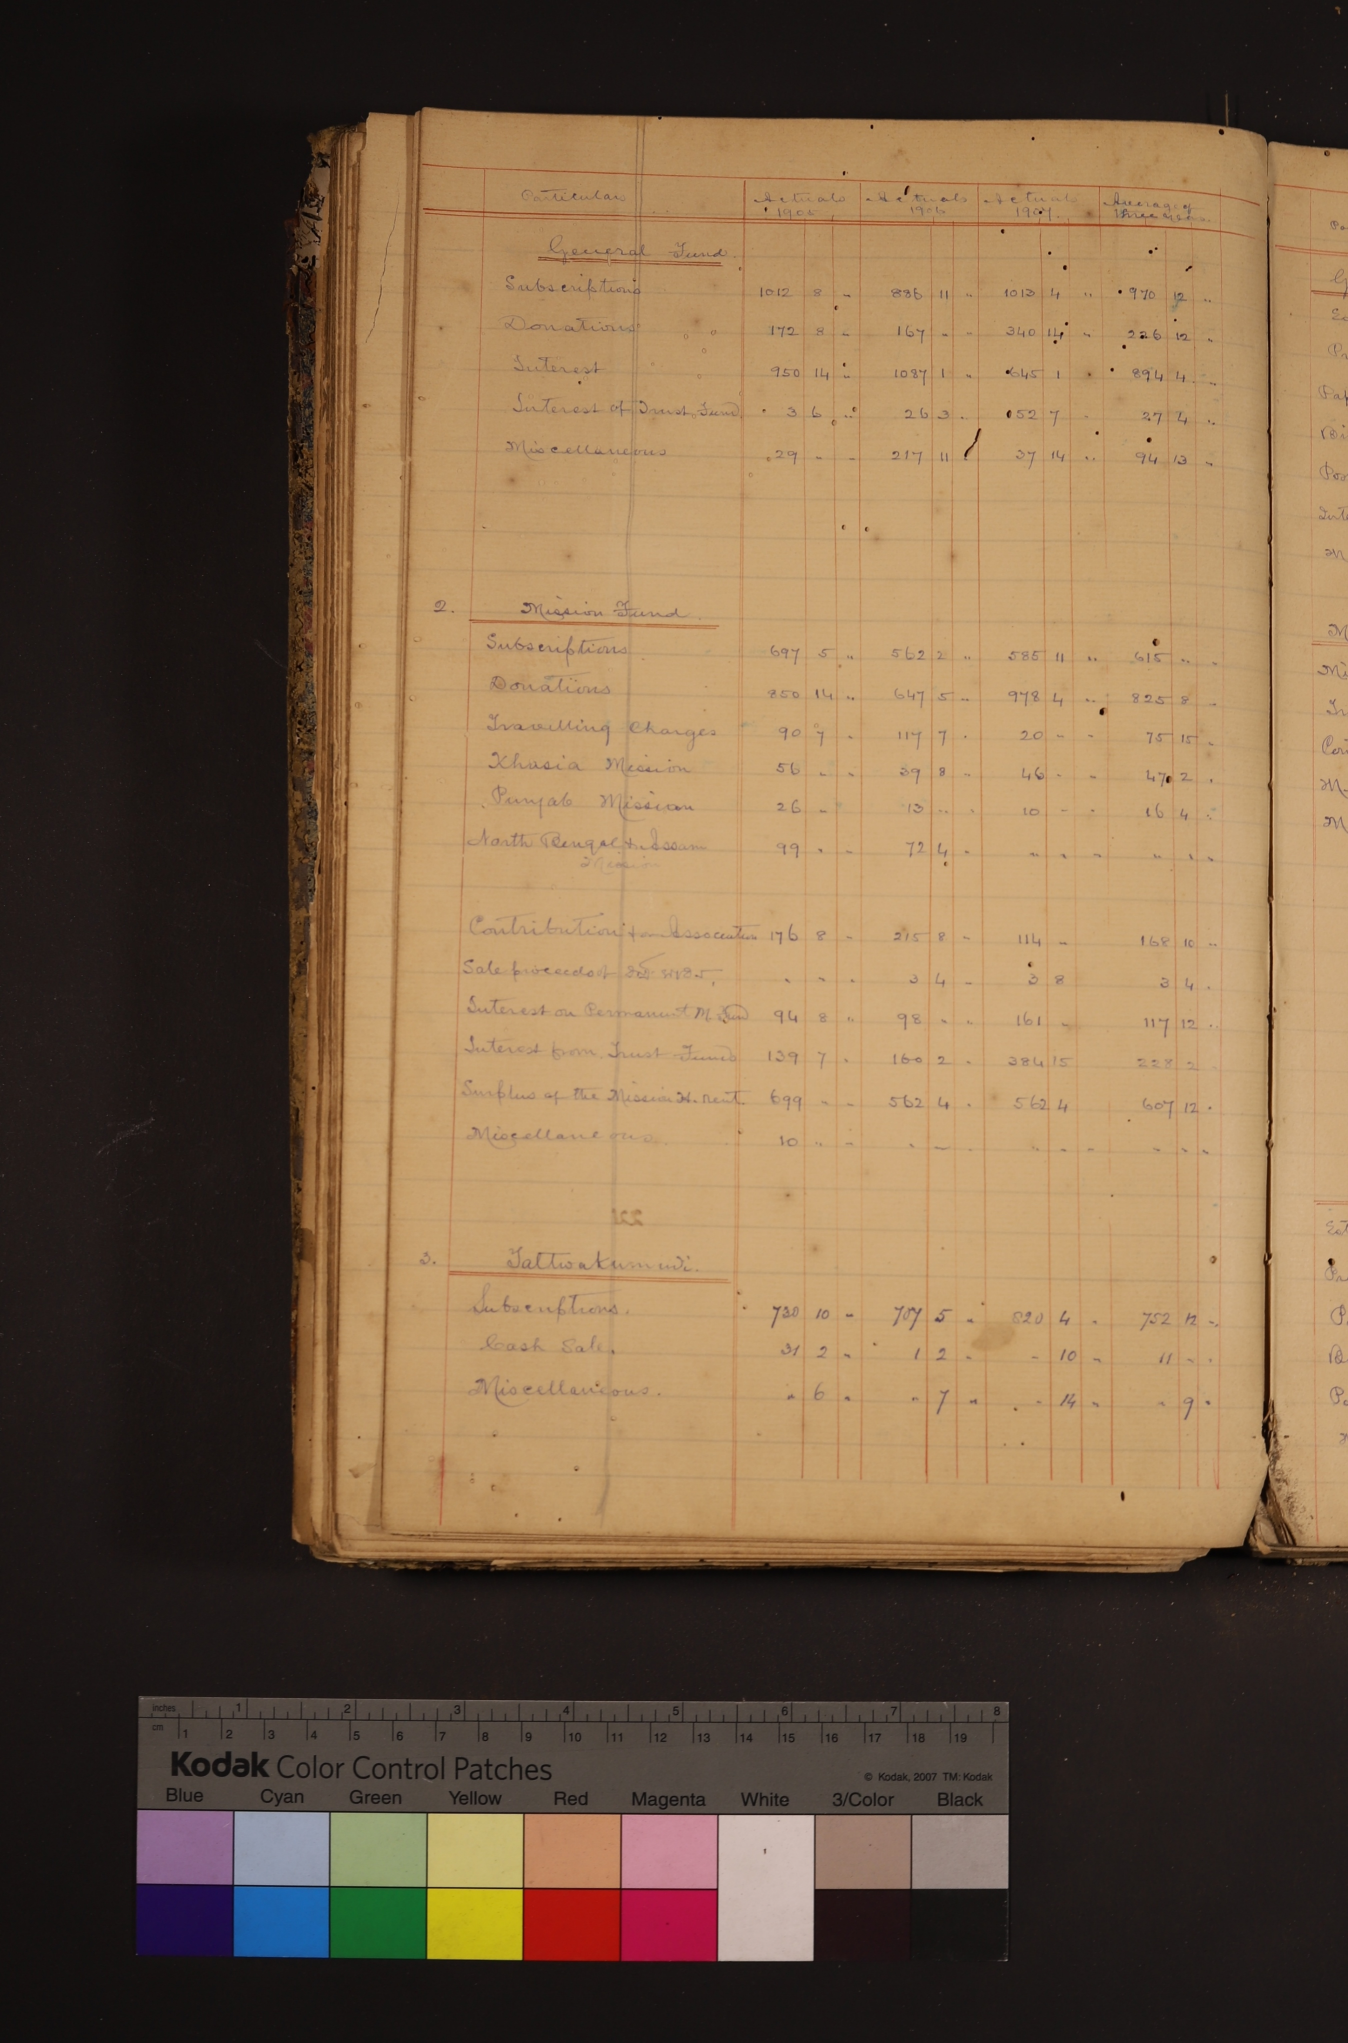 Particulars Actuals 1905 Actuals 1906 Actuals 1907. Average of three years.
General Fund.
Subscriptions 1012 8 " 886 11 " 1013 4 " 970 12 "
Donations 172 8 " 167 " " 340 14 " 226 12 "
Interest 950 14 " 1087 1 " 645 1 " 894 4 "
Interest of Trust Fund 3 6 " 26 3 " 52 7 " 27 4 "
Miscellaneous 29 " " 217 11 " 37 14 " 94 13 "
2. Mission Fund.
Subscriptions 697 5 " 562 2 " 585 11 " 615 " "
Donations 850 14 " 647 5 " 978 4 " 825 8 "
Travelling Charges 90 7 " 117 7 " 20 " " 75 15 "
Khasia Mission 56 " " 39 8 " 46 " " 47 2 "
Punjab Mission 26 " 13 " " 10 " " 16 4 "
North Bengal & Assam 99 " " 72 4 " " " " " " "
Mission
Contribution from Association 176 8 " 215 8 " 114 " 168 10 "
Sale proceeds of " " " 3 4 " 3 8 3 4 "
Interest on Permanent M. Fund 94 8 " 98 " " 161 " 117 12 "
Interest from Trust Funds 139 7 " 160 2 " 384 15 228 2
Surplus of the Mission H. Rent. 699 " " 562 4 " 562 4 607 12 "
Miscellaneous. 10 " " " " " " " " " " "
221
3. Tattwakumudi.
Subscriptions. 730 10 " 707 5 " 820 4 " 752 12 "
Cash Sale. 31 2 " 1 2 " " 10 " 11 " "
Miscellanious. " 6 " " 7 " " 14 " " 9 "
inches 1 2 3 4 5 6 7 8
cm 1 2 3 4 5 6 7 8 9 10 11 12 13 14 15 16 17 18 19
Kodak Color Control Patches
© Kodak, 2007 TM: Kodak
Blue Cyan Green Yellow Red Magenta White 3/Color Black